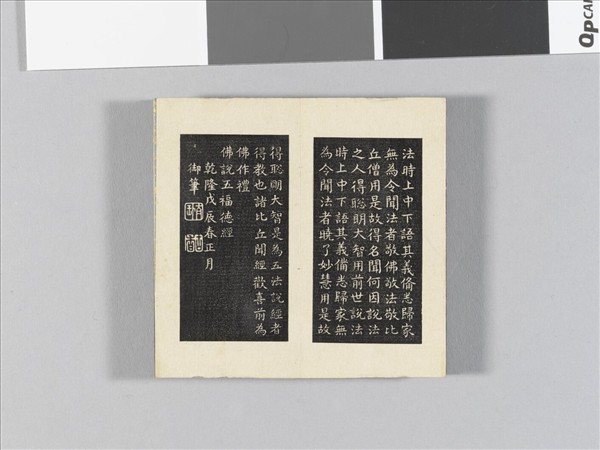 法時上中下語其義備悉歸家
無為今聞法者敬佛敬法敬比
丘僧用是故得名聞何因說法
之人得聰明大智用前世說法
時上中下語其義備悉歸家無
為今聞法者曉了妙慧用是故
得聰明大智是為五法說經者
得教也諸比丘聞經歡喜前為
佛作禮
佛說五福德經
乾隆戊辰春正月
御筆
QpCA